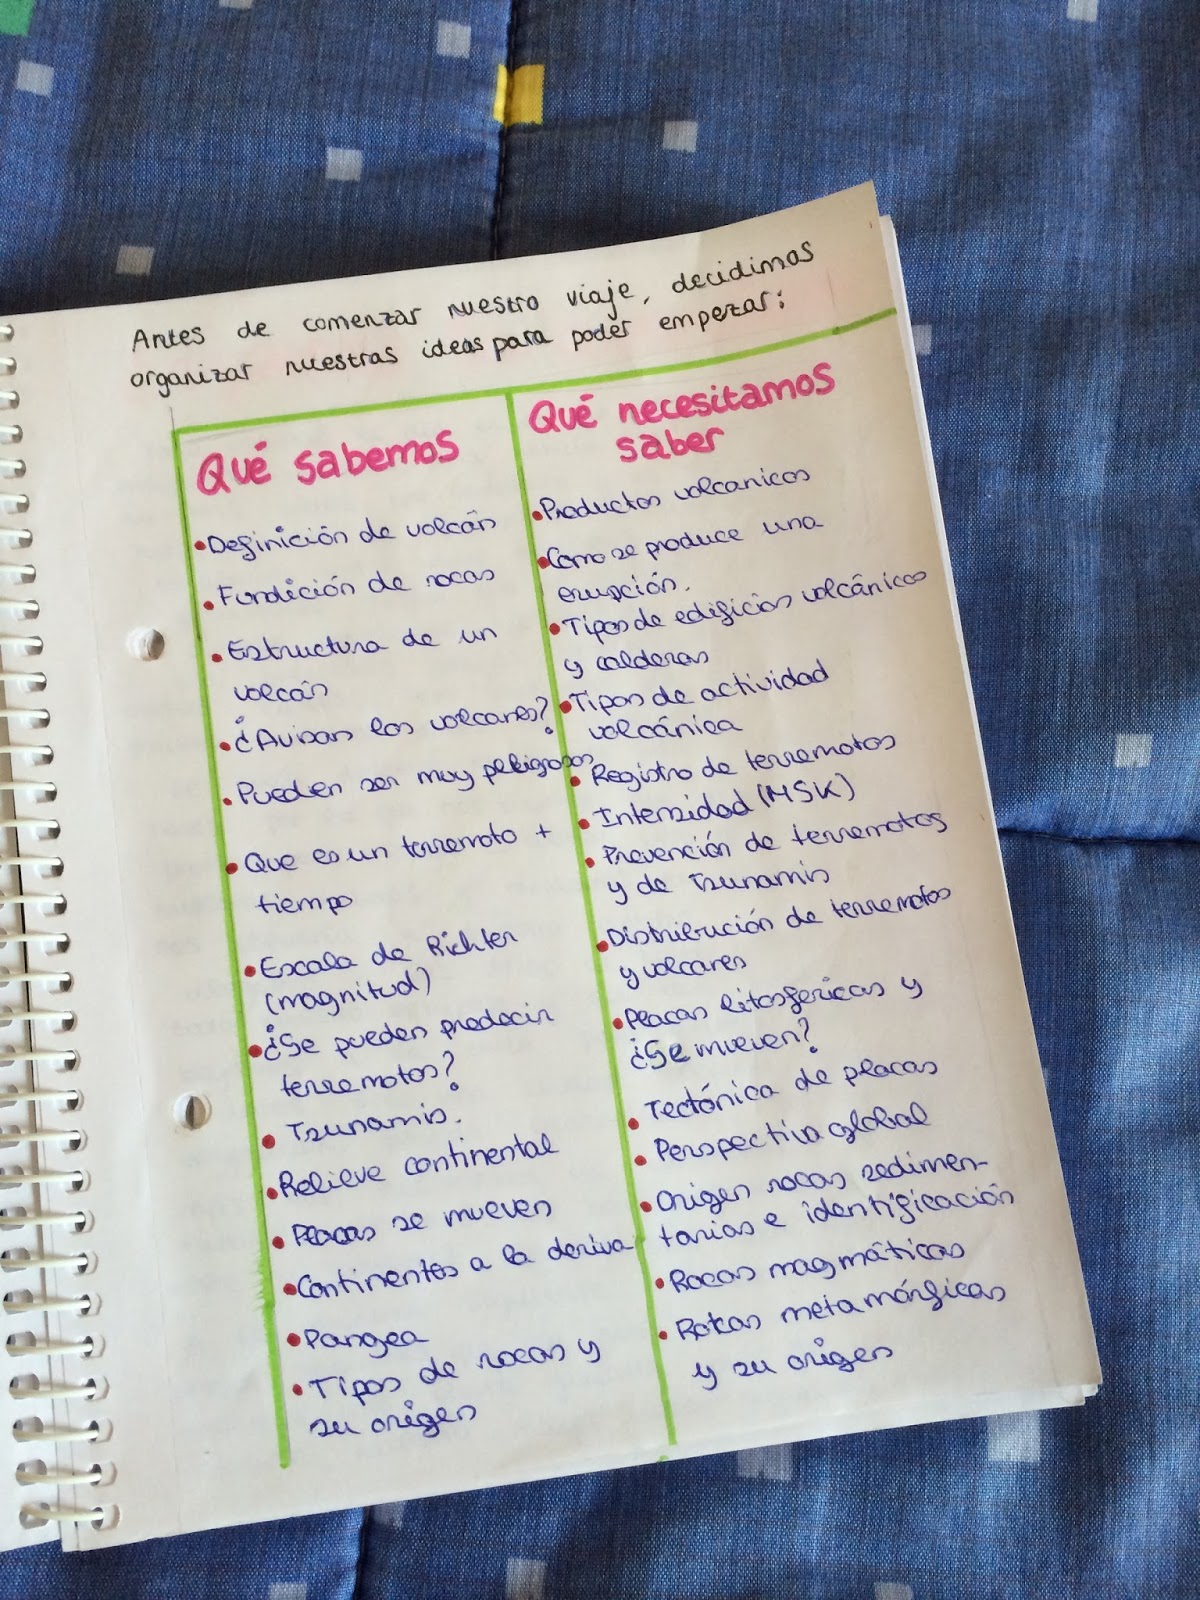 Antes de comenzar nuestro viaje, decidimos
organizar nuestras ideas para poder empezar:
Qué sabemos
• Definición de volcán
• Fundición de rocas
• Estructura de un
volcán
• ¿Avisan los volcanes?
• Pueden ser muy peligrosos
• Que es un terremoto +
tiempo
• Escala de Richter
(magnitud)
• ¿Se pueden predecir
terremotos?
• Tsunamis.
• Relieve continental
• Placas se mueven
• Continentes a la deriva
• Pangea
• Tipos de rocas y
su origen
Qué necesitamos
saber
• Productos volcanicos
• Como se produce una
erupción.
• Tipos de edificios volcánicos
y calderas
• Tipos de actividad
volcánica
• Registro de terremotos
• Intensidad (MSK)
• Prevención de terremotos
y de Tsunamis
• Distribución de terremotos
y volcanes
• Placas litosfericas y
¿Se mueven?
• Tectónica de placas
• Perspectiva global
• Origen rocas sedimen-
tarias e identificación
• Rocas magmáticas
• Rocas metamórficas
y su origen